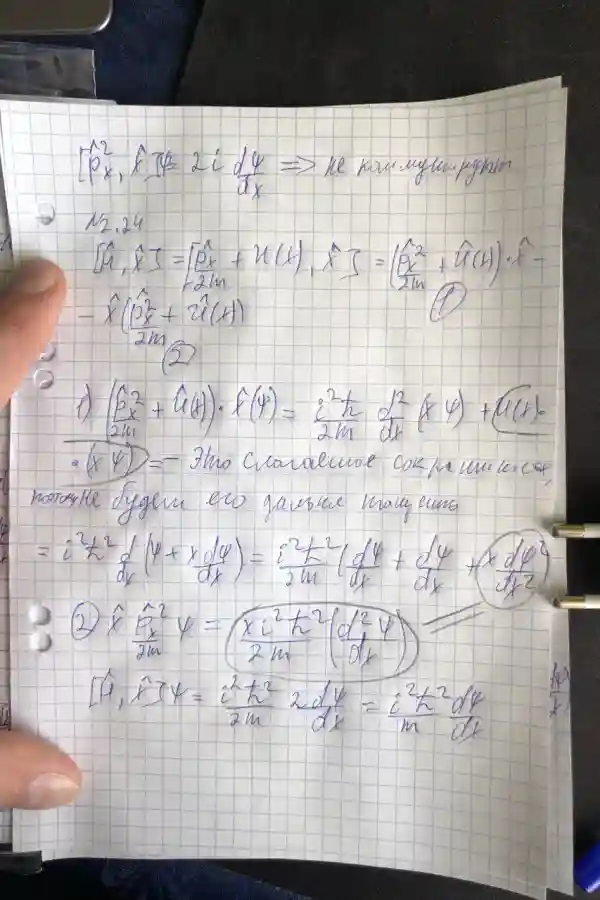 [p̂ₓ², x̂]ψ = 2i dψ/dx ⟹ не коммутируют
№2.24
[Ĥ, x̂] = [p̂ₓ²/2m + U(x), x̂] = (p̂ₓ²/2m + Û(x))·x̂ − ①
− x̂(p̂ₓ²/2m + Û(x)) ②
1) (p̂ₓ²/2m + Û(x))·x̂(ψ) = i²ħ/2m d²/dx (xψ) + U(x)·
·(xψ) = – Это слагаемое сократится,
поэтому не будем его дальше писать
= i²ħ² d/dx (ψ + x dψ/dx) = i²ħ²/2m (dψ/dx + dψ/dx + x dψ²/dx²)
② x̂ p̂ₓ²/2m ψ = x i²ħ²/2m (d²ψ/dx)
[Ĥ, x̂]ψ = i²ħ²/2m 2 dψ/dx = i²ħ²/m dψ/dx